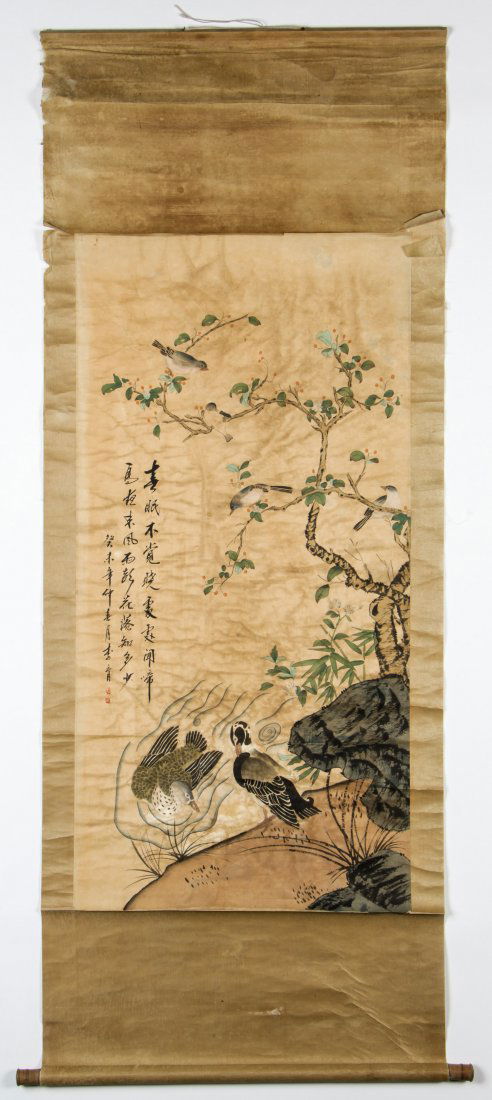 春眠不覺曉處處聞啼
鳥夜來風雨聲花落知多少
癸未年仲春月李育